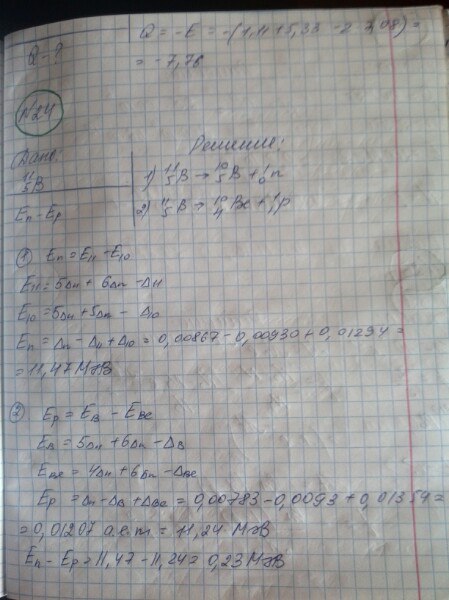 Q = -E = -(1,11+5,33 - 2·7,08) =
Q - ?
= -7,76
N24
Дано:
Решение:
¹¹₅B
1) ¹¹₅B → ¹⁰₅B + ¹₀n
Eп - Ep
2) ¹¹₅B → ¹⁰₄Be + ¹₁p
① Eп = E₁₁ - E₁₀
E₁₁ = 5Δн + 6Δп - Δ₁₁
E₁₀ = 5Δн + 5Δп - Δ₁₀
Eп = Δп - Δ₁₁ + Δ₁₀ = 0,00867 - 0,00930 + 0,01294 =
= 11,47 МэВ
② Ep = EB - EBe
EB = 5Δн + 6Δп - ΔB
EBe = 4Δн + 6Δп - ΔBe
Ep = Δн - ΔB + ΔBe = 0,00783 - 0,0093 + 0,01354 =
= 0,01207 а.е.м. = 11,24 МэВ
Eп - Ep = 11,47 - 11,24 = 0,23 МэВ